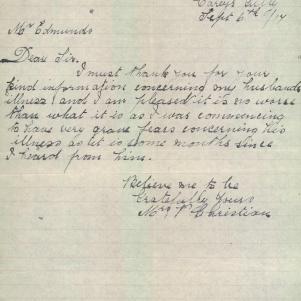 Careys Gully
Sept 6th /17
Mr Edmunds
Dear Sir.
I must thank you for your
kind information concerning my husbands
illness! and I am pleased it is no worse
than what it is as I was commencing
to have very grave fears concerning his
illness as it is some months since
I heard from him.
Believe me to be
Gratefully Yours
Mrs P Christian